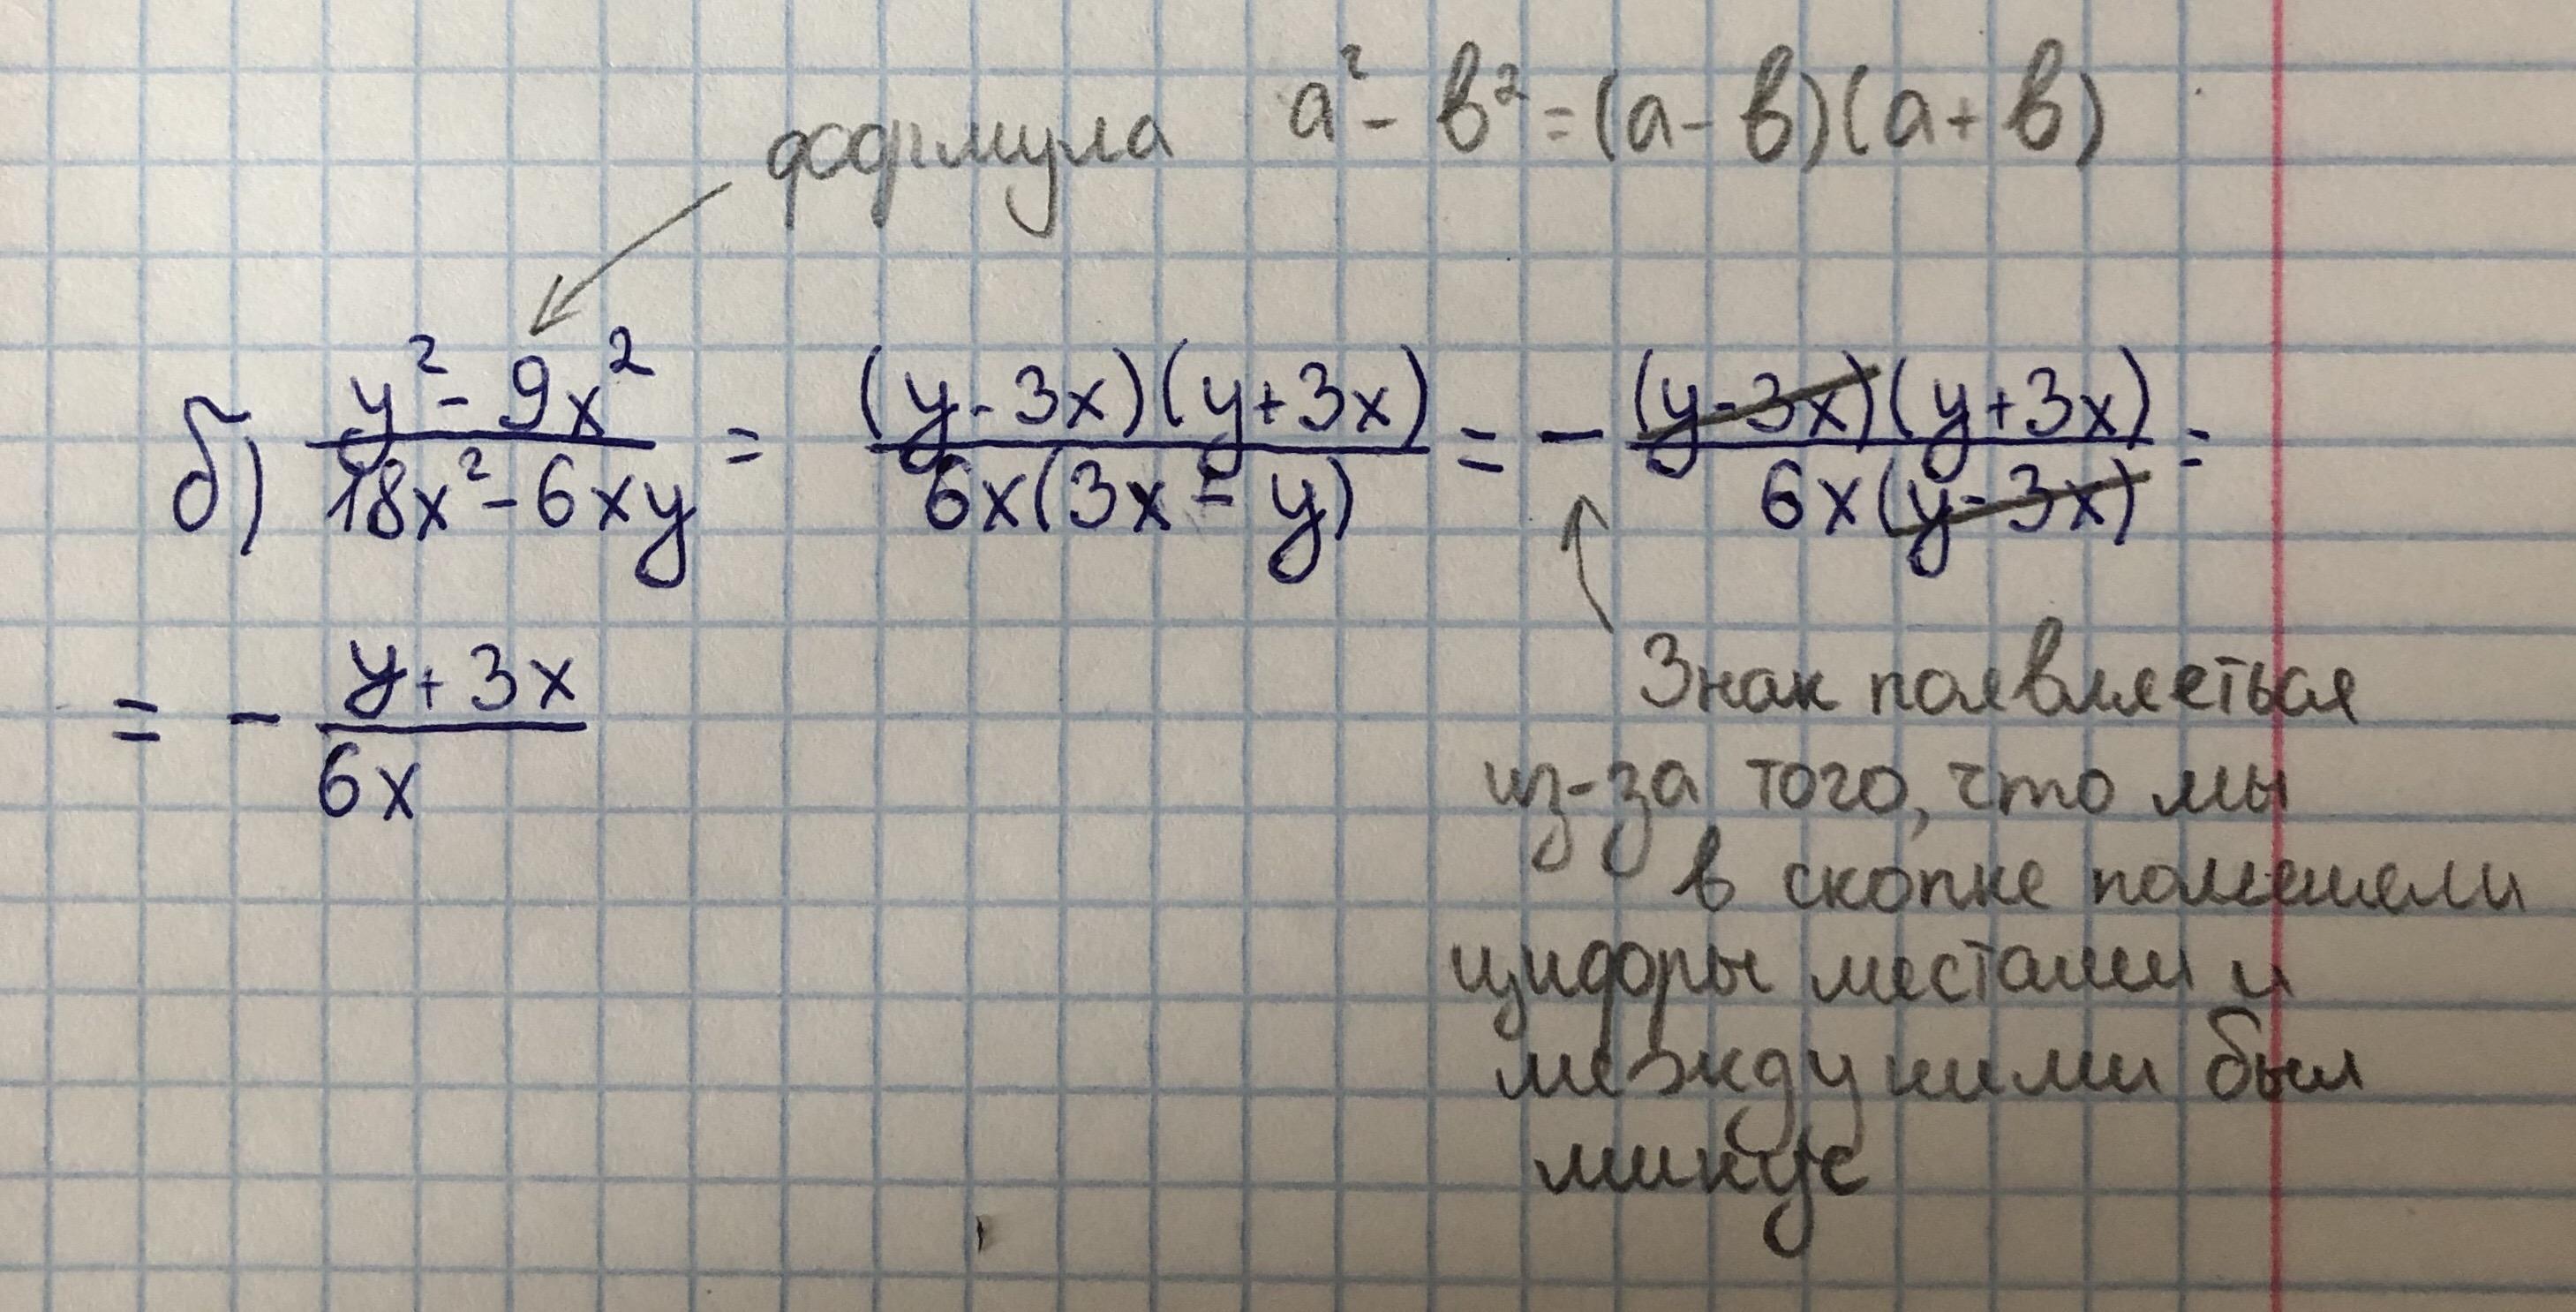 формула a² - b² = (a - b)(a + b)
б) (y² - 9x²)/(18x² - 6xy) = ((y - 3x)(y + 3x))/(6x(3x - y)) = - ((y - 3x)(y + 3x))/(6x(y - 3x)) =
= - (y + 3x)/(6x)
Знак появляеться
из-за того, что мы
в скопке поменели
цифоры местами и
между ними был
минус